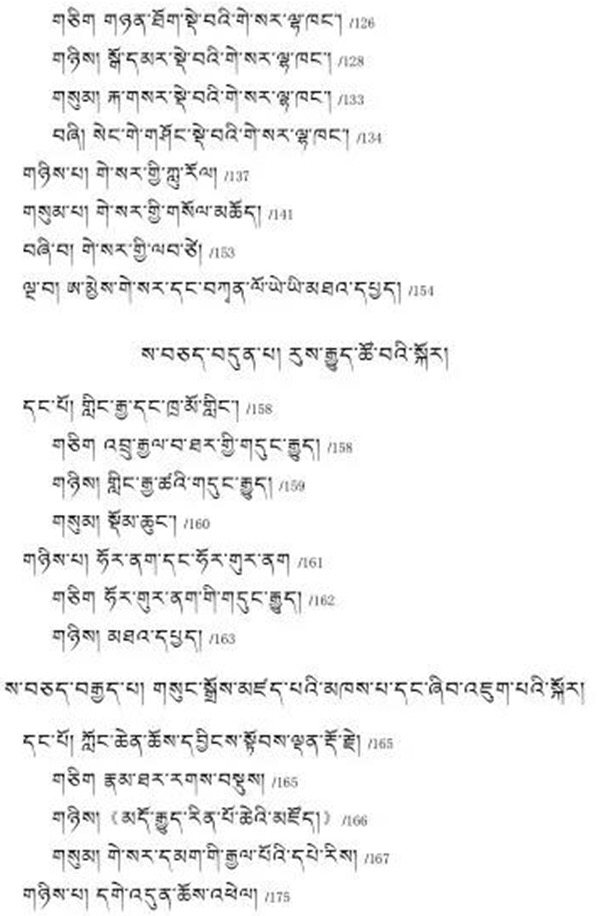 གཅིག གཉན་ཐོག་སྡེ་བའི་གེ་སར་ལྷ་ཁང་། /126
གཉིས། སྒོ་དམར་སྡེ་བའི་གེ་སར་ལྷ་ཁང་། /128
གསུམ། རྐ་གསར་སྡེ་བའི་གེ་སར་ལྷ་ཁང་། /133
བཞི། སེང་གེ་གཤོང་སྡེ་བའི་གེ་སར་ལྷ་ཁང་། /134
གཉིས་པ། གེ་སར་གྱི་ཀླུ་རོལ། /137
གསུམ་པ། གེ་སར་གྱི་གསོལ་མཆོད། /141
བཞི་བ། གེ་སར་གྱི་ལབ་ཙེ། /153
ལྔ་བ། ཨ་མྱེས་གེ་སར་དང་བཀྭན་ལོ་ཡེ་ཡི་མཐའ་དཔྱད། /154
ས་བཅད་བདུན་པ། རུས་རྒྱུད་ཚོ་བའི་སྐོར།
དང་པོ། གླིང་རྒྱ་དང་ཁྲ་མོ་གླིང་། /158
གཅིག འབྲུ་རྒྱལ་བ་ཐར་གྱི་གདུང་རྒྱུད། /158
གཉིས། གླིང་རྒྱ་ཚའི་གདུང་རྒྱུད། /159
གསུམ། སྡོམ་ཆུང་། /160
གཉིས་པ། ཧོར་ནག་དང་ཧོར་གུར་ནག /161
གཅིག ཧོར་གུར་ནག་གི་གདུང་རྒྱུད། /162
གཉིས། མཐའ་དཔྱད། /163
ས་བཅད་བརྒྱད་པ། གསུང་སྒྲོས་མཛད་པའི་མཁས་པ་དང་ཞིབ་འཇུག་པའི་སྐོར།
དང་པོ། ཀློང་ཆེན་ཆོས་དབྱིངས་སྟོབས་ལྡན་རྡོ་རྗེ། /165
གཅིག རྣམ་ཐར་རགས་བསྡུས། /165
གཉིས། 《མདོ་རྒྱུད་རིན་པོ་ཆེའི་མཛོད།》 /166
གསུམ། གེ་སར་དམག་གི་རྒྱལ་པོའི་དཔེ་རིས། /167
གཉིས་པ། དགེ་འདུན་ཆོས་འཕེལ། /175